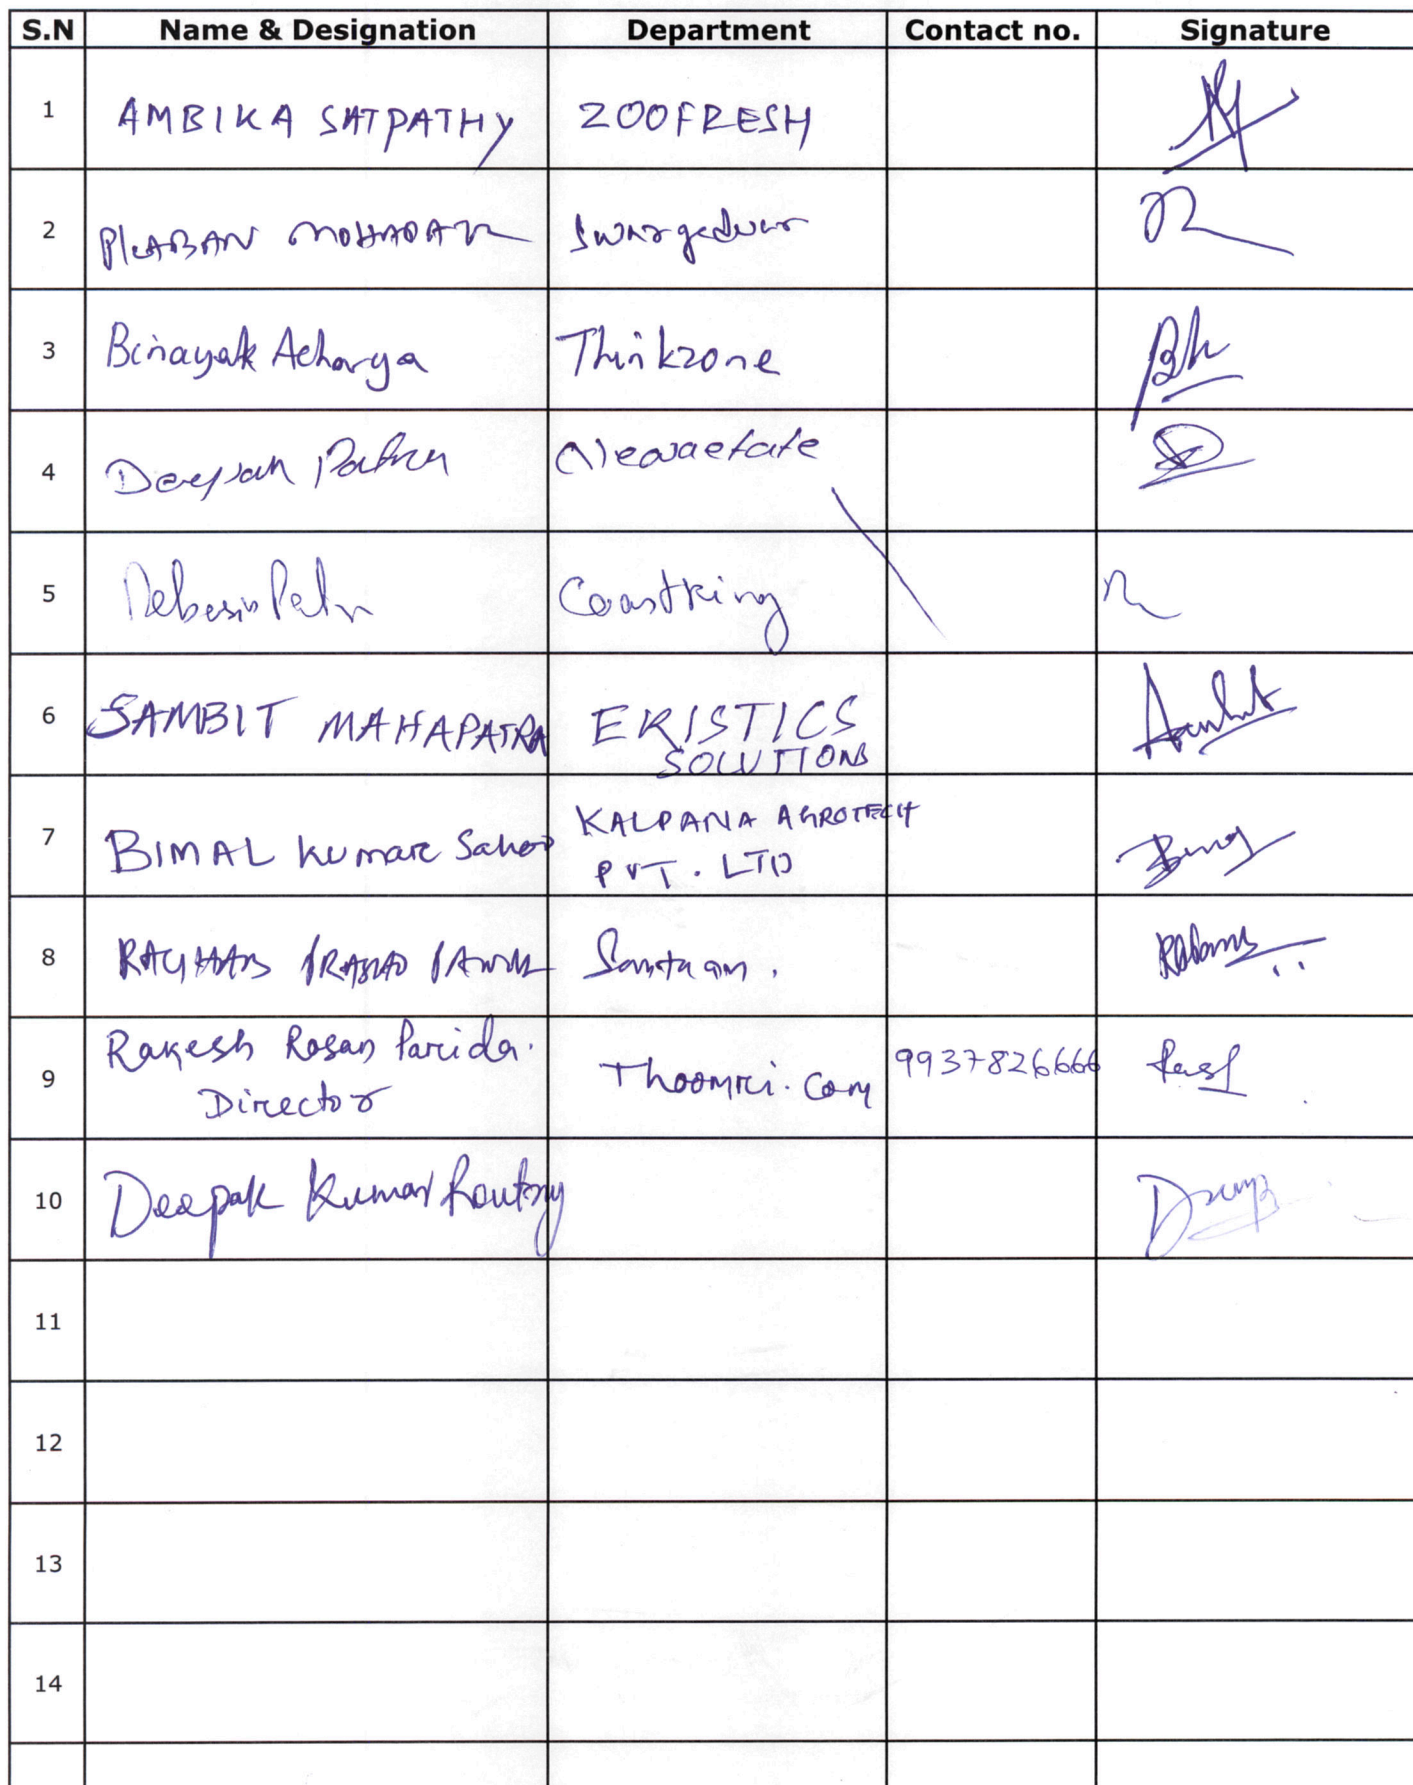 S.N Name & Designation Department Contact no. Signature
1 AMBIKA SATPATHY ZOOFRESH
2 PLABAN
3 Binayak Acharya Thinkzone
4 Deepak Patra
5 Coastking
6 SAMBIT MAHAPATRA ERISTICS
SOLUTIONS
7 BIMAL Kumar Sahoo KALPANA AGROTECH
PVT. LTD
8 RAGHAB PRASAD Santaan.
9 Rakesh Rosan Parida.
Director Thoomri.com 9937826666
10 Deepak Kumar Routray
11
12
13
14